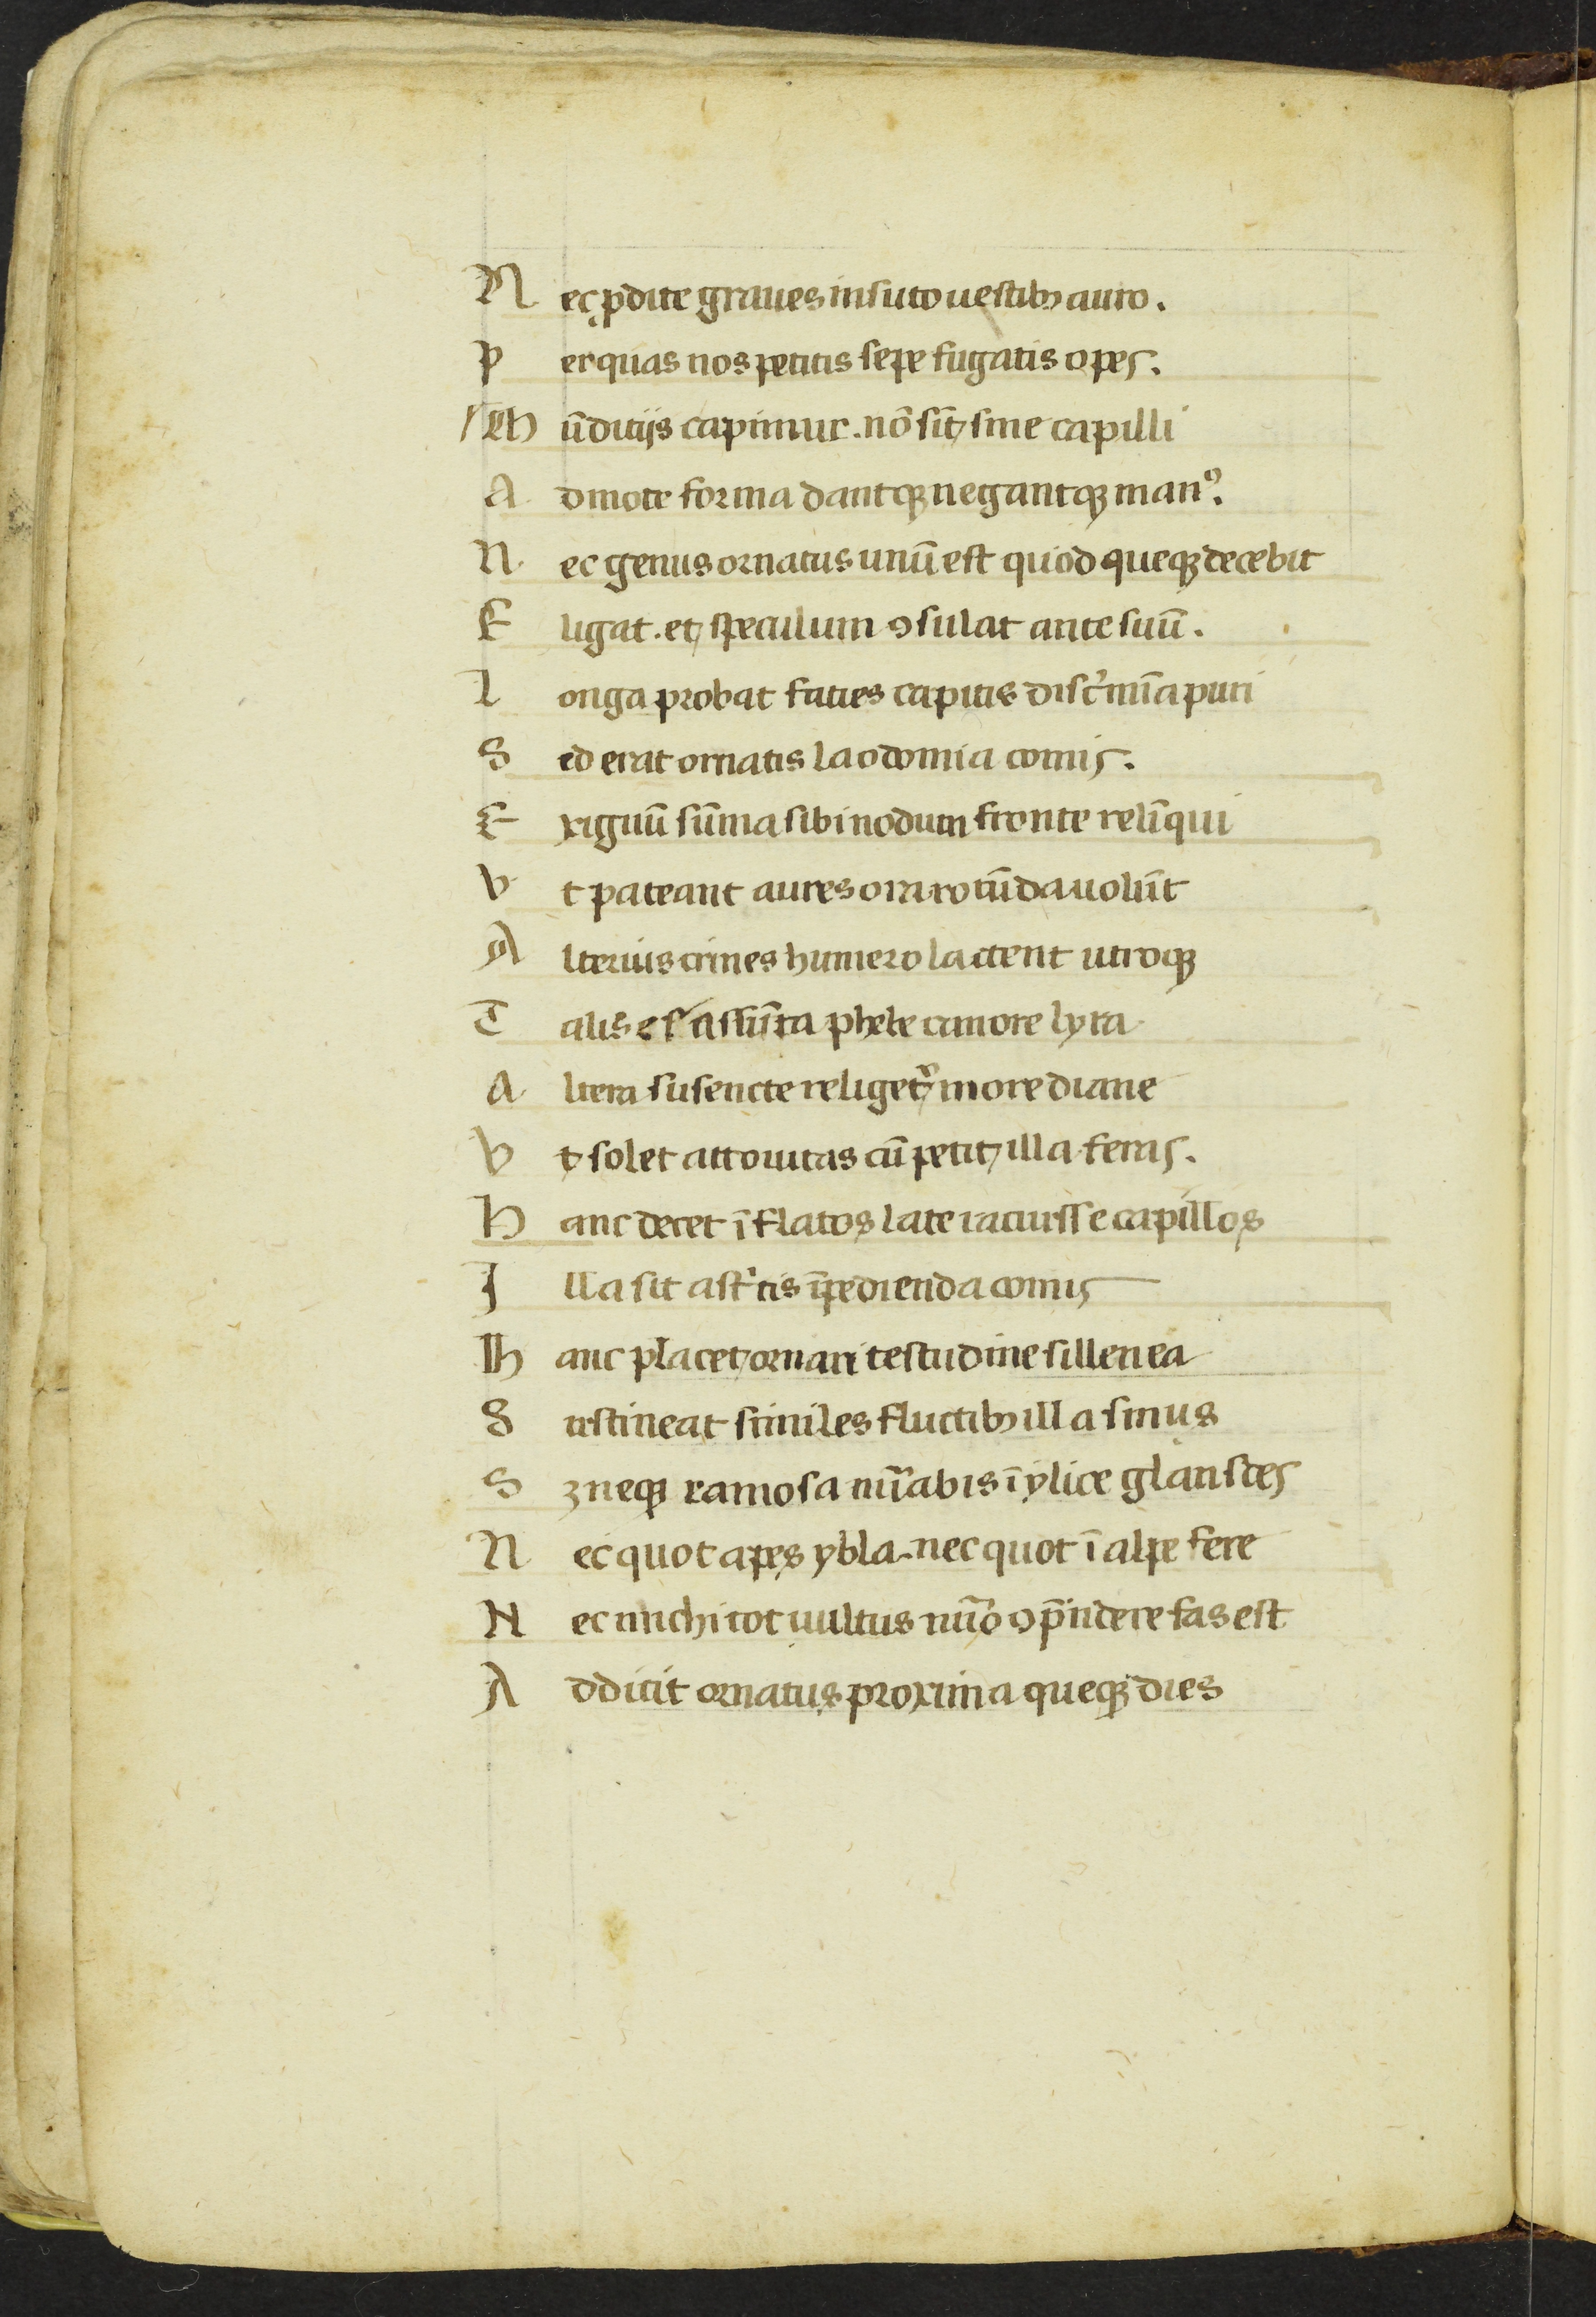 N ec ꝓdite graues insuto uestibꝫ auro.
P er quas nos petitis sepe fugatis opes.
M ūditijs capimur. nō sīt sine capilli
A dmote forma dantqꝫ negantqꝫ manꝰ.
N ec genus ornatus unū est quod queqꝫ decebit
E ligat. et speculum ꝯsulat ante suū.
L onga probat faties capitis discͥmīa puri
S ed erat ornatis laodomia comis.
E xiguū sūma sibi nodum fronte relīqui
V t pateant aures ora rotūda uolūt
A lterius crines humero iactent utroqꝫ
T alis es assūta phebe canore lyra
A ltera sucencte religetᷣ more diane
V t solet attonitas cū petit illa feras.
H anc decet īflatos late iacuisse capillos
I lla sit astͥctis īpedienda comis
H anc placet ornari testudine sillenea
S ustineat similes fluctibꝫ illa sinus
S ꝫ neqꝫ ramosa nūabis ī ylice glandes
N ec quot apes ybla. nec quot ī alpe fere
N ec michi tot uultus nūo ꝯp̄ndere fas est
A ddicit ornatus proxima queqꝫ dies